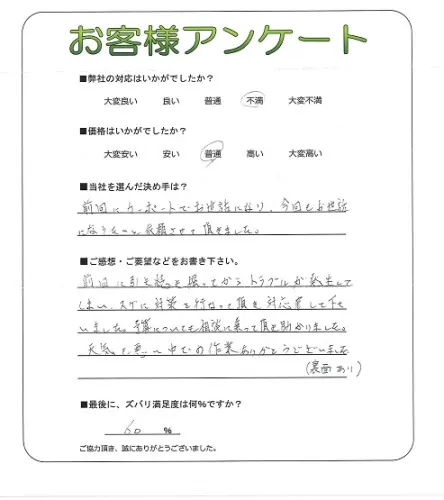 お客様アンケート
■弊社の対応はいかがでしたか？
大変良い 良い 普通 不満 大変不満
■価格はいかがでしたか？
大変安い 安い 普通 高い 大変高い
■当社を選んだ決め手は？
前回にカーポートでお世話になり、今回もお世話
になりたいと依頼させて頂きました。
■ご感想・ご要望などをお書き下さい。
前回に引き続き 掘ってから トラブルが発生して
しまい、スグに対策を行なって頂き 対応 して下さ
いました。予算についても相談に乗って頂き助かりました。
天気の悪い中での作業ありがとうございました
(裏面あり)
■最後に、ズバリ満足度は何%ですか？
60 %
ご協力頂き、誠にありがとうございました。